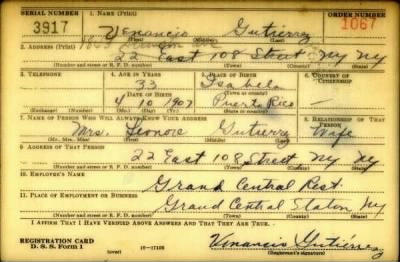 SERIAL NUMBER 1. NAME (Print) ORDER NUMBER
3917 Venancio Gutierrez 1067
(First) (Middle) (Last)
2. ADDRESS (Print) 1865
22 East 108 Street Ny Ny
(Number and street or R. F. D. number) (Town) (County) (State)
3. TELEPHONE 4. AGE IN YEARS 5. PLACE OF BIRTH 6. COUNTRY OF CITIZENSHIP
33 Isabela
DATE OF BIRTH (Town or county)
4 10 1907 Puerto Rico
(Exchange) (Number) (Mo.) (Day) (Yr.) (State or country)
7. NAME OF PERSON WHO WILL ALWAYS KNOW YOUR ADDRESS 8. RELATIONSHIP OF THAT PERSON
Mrs. Leonor Gutierrez Wife
(Mr., Mrs., Miss) (First) (Middle) (Last)
9. ADDRESS OF THAT PERSON
22 East 108 Street Ny Ny
(Number and street or R. F. D. number) (Town) (County) (State)
10. EMPLOYER'S NAME
Grand Central Rest.
11. PLACE OF EMPLOYMENT OR BUSINESS
Grand Central Station Ny
(Number and street or R. F. D. number) (Town) (County) (State)
I AFFIRM THAT I HAVE VERIFIED ABOVE ANSWERS AND THAT THEY ARE TRUE.
REGISTRATION CARD
D. S. S. Form 1 (over) 16—17105 Venancio Gutiérrez
(Registrant's signature)